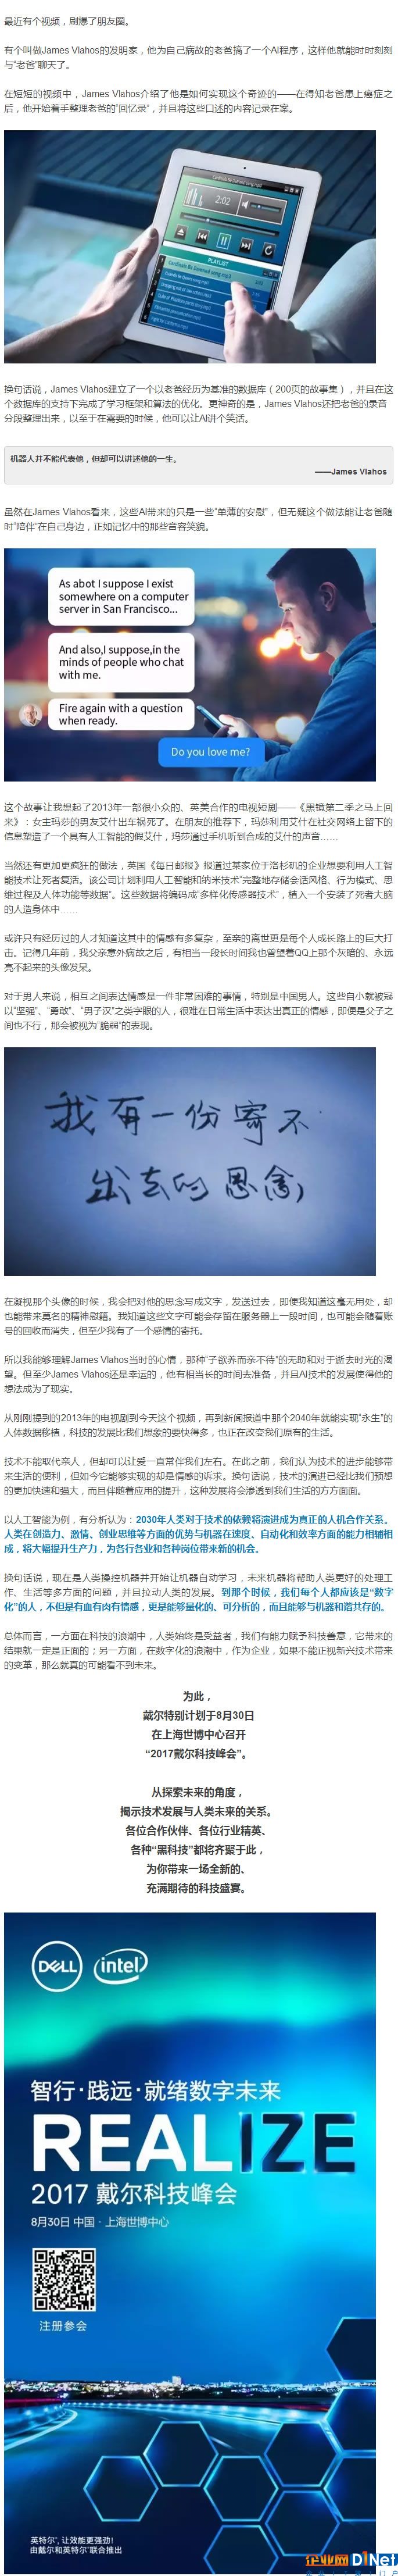 最近有个视频，刷爆了朋友圈。
有个叫做James Vlahos的发明家，他为自己病故的老爸搞了一个AI程序，这样他就能时时刻刻
与“老爸”聊天了。
在短短的视频中，James Vlahos介绍了他是如何实现这个奇迹的——在得知老爸患上癌症之
后，他开始着手整理老爸的“回忆录”，并且将这些口述的内容记录在案。
2:02
PLAYLIST
换句话说，James Vlahos建立了一个以老爸经历为基准的数据库（200页的故事集），并且在这
个数据库的支持下完成了学习框架和算法的优化。更神奇的是，James Vlahos还把老爸的录音
分段整理出来，以至于在需要的时候，他可以让AI讲个笑话。
机器人并不能代表他，但却可以讲述他的一生。
——James Vlahos
虽然在James Vlahos看来，这些AI带来的只是一些“单薄的安慰”，但无疑这个做法能让老爸随
时“陪伴”在自己身边，正如记忆中的那些音容笑貌。
As abot I suppose I exist
somewhere on a computer
server in San Francisco...
And also,I suppose,in the
minds of people who chat
with me.
Fire again with a question
when ready.
Do you love me?
这个故事让我想起了2013年一部很小众的、英美合作的电视短剧——《黑镜第二季之马上回
来》：女主玛莎的男友艾什出车祸死了。在朋友的推荐下，玛莎利用艾什在社交网络上留下的
信息塑造了一个具有人工智能的假艾什，玛莎通过手机听到合成的艾什的声音……
当然还有更加更疯狂的做法，英国《每日邮报》报道过某家位于洛杉矶的企业想要利用人工智
能技术让死者复活。该公司计划利用人工智能和纳米技术“完整地存储会话风格、行为模式、思
维过程及人体功能等数据”。这些数据将编码成“多样化传感器技术”，植入一个安装了死者大脑
的人造身体中……
或许只有经历过的人才知道这其中的情感有多复杂，至亲的离世更是每个人成长路上的巨大打
击。记得几年前，我父亲意外病故之后，有相当一段长时间我也曾望着QQ上那个灰暗的、永远
亮不起来的头像发呆。
对于男人来说，相互之间表达情感是一件非常困难的事情，特别是中国男人。这些自小就被冠
以“坚强”、“勇敢”、“男子汉”之类字眼的人，很难在日常生活中表达出真正的情感，即便是父子之
间也不行，那会被视为“脆弱”的表现。
我有一份寄不
出去的思念
在凝视那个头像的时候，我会把对他的思念写成文字，发送过去，即便我知道这毫无用处，却
也能带来莫名的精神慰籍。我知道这些文字可能会存留在服务器上一段时间，也可能会随着账
号的回收而消失，但至少我有了一个感情的寄托。
所以我能够理解James Vlahos当时的心情，那种“子欲养而亲不待”的无助和对于逝去时光的渴
望。但至少James Vlahos还是幸运的，他有相当长的时间去准备，并且AI技术的发展使得他的
想法成为了现实。
从刚刚提到的2013年的电视剧到今天这个视频，再到新闻报道中那个2040年就能实现“永生”的
人体数据移植，科技的发展比我们想象的要快得多，也正在改变我们原有的生活。
技术不能取代亲人，但却可以让爱一直常伴我们左右。在此之前，我们认为技术的进步能够带
来生活的便利，但如今它能够实现的却是情感的诉求。换句话说，技术的演进已经比我们预想
的更加快速和强大，而且伴随着应用的提升，这种发展将会渗透到我们生活的方方面面。
以人工智能为例，有分析认为：2030年人类对于技术的依赖将演进成为真正的人机合作关系。
人类在创造力、激情、创业思维等方面的优势与机器在速度、自动化和效率方面的能力相辅相
成，将大幅提升生产力，为各行各业和各种岗位带来新的机会。
换句话说，现在是人类操控机器并开始让机器自动学习，未来机器将帮助人类更好的处理工
作、生活等多方面的问题，并且拉动人类的发展。到那个时候，我们每个人都应该是“数字
化”的人，不但是有血有肉有情感，更是能够量化的、可分析的，而且能够与机器和谐共存的。
总体而言，一方面在科技的浪潮中，人类始终是受益者，我们有能力赋予科技善意，它带来的
结果就一定是正面的；另一方面，在数字化的浪潮中，作为企业，如果不能正视新兴技术带来
的变革，那么就真的可能看不到未来。
为此，
戴尔特别计划于8月30日
在上海世博中心召开
“2017戴尔科技峰会”。
从探索未来的角度，
揭示技术发展与人类未来的关系。
各位合作伙伴、各位行业精英、
各种“黑科技”都将齐聚于此，
为你带来一场全新的、
充满期待的科技盛宴。
DELL intel
智行·践远·就绪数字未来
REALIZE
2017 戴尔科技峰会
8月30日 中国·上海世博中心
注册参会
英特尔®, 让效能更强劲!
由戴尔和英特尔®联合推出
企业网D1Net